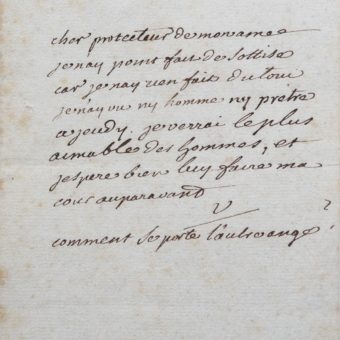 cher protecteur de mon ame
je nay point fait de sottise
car je nay rien fait du tout
je nay vu ny homme ny prêtre
a jeudy. je verrai le plus
aimable des hommes, et
jespere bien luy faire ma
cour auparavant
V
comment se porte l'autre ange ?